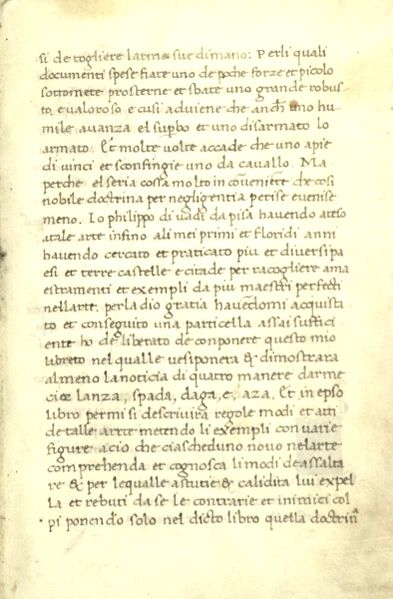 si de togliere larme sue di mano: Perli quali
documenti spese fiate uno de poche forze et picolo
sottomete prosterne et sbate uno grande robus-
to, e valoroso e cusi adviene che anchi uno hu
mile avanza el supbo et uno disarmato lo
armato. Et molte volte accade che uno apie
di vinci et sconfingie uno da cavallo. Ma
perche el seria cossa molto in cōveniēte che cosi
nobile doctrina per negligentia perise e venise
meno. Io philippo di vadi da pisa havendo ateso
atale arte infino ali mei primi et floridi anni
havendo cercato et praticato piu et diversi pa
esi et terre castelle e citade per racogliere ama
estramenti et exempli da piu maestri perfecti
nellarte, per la dio gratia havendomi acquista
to et conseguito una particella assai suffici
ente ho deliberato de conponere questo mio
libreto nel qualle vesiponera & dimostrara
almeno la noticia di quatro manere darme
cioe lanza, spada, daga, e, aza, Et in epso
libro per mi si descrivira regole modi et atti
de talle arte metendo li exempli con varie
figure acio, che ciascheduno novo nelarte
comprehenda et cognosca li modi de assalta
re & per lequalle astutie & calidita lui expel
la et rebuti da se le contrarie et inimici col
pi ponendo solo nel dicto libro quella doctrin